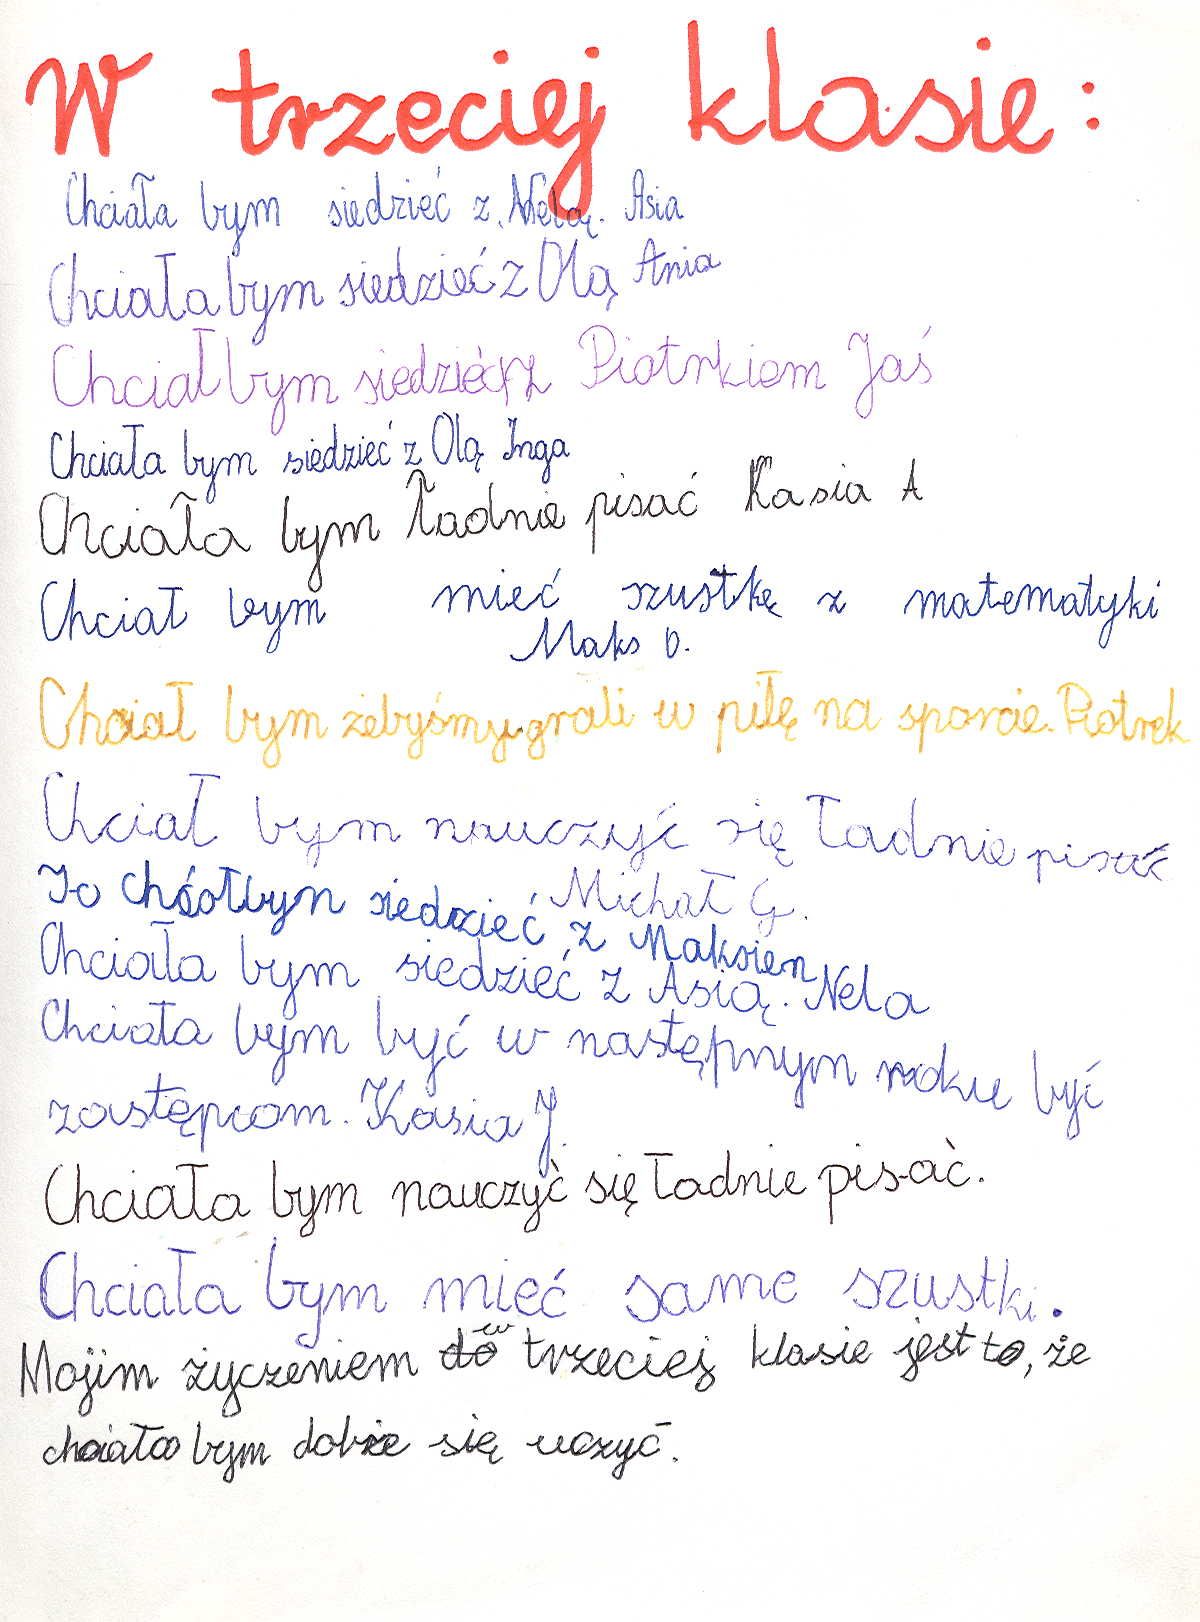 W trzeciej klasie:
Chciała bym siedzieć z Nelą. Asia
Chciała bym siedzieć z Olą Ania
Chciał bym siedzieć z Piotrkiem Jaś
Chciała bym siedzieć z Olą Inga
Chciała bym ładnie pisać Kasia A
Chciał bym mieć szustkę z matematyki
Maks D.
Chciał bym żebyśmy grali w piłę na sporcie. Piotrek
Chciał bym nauczyć się ładnie pisać
Michał G.
Jo chćołbyn siedzieć z Maksien
Chciała bym siedzieć z Asią. Nela
Chciała bym być w następnym roku być
zastępcom. Kasia J.
Chciała bym nauczyć się ładnie pisać.
Chciała bym mieć same szustki.
Mojim życzeniem w trzeciej klasie jest to, że
chciała bym dobże się uczyć.